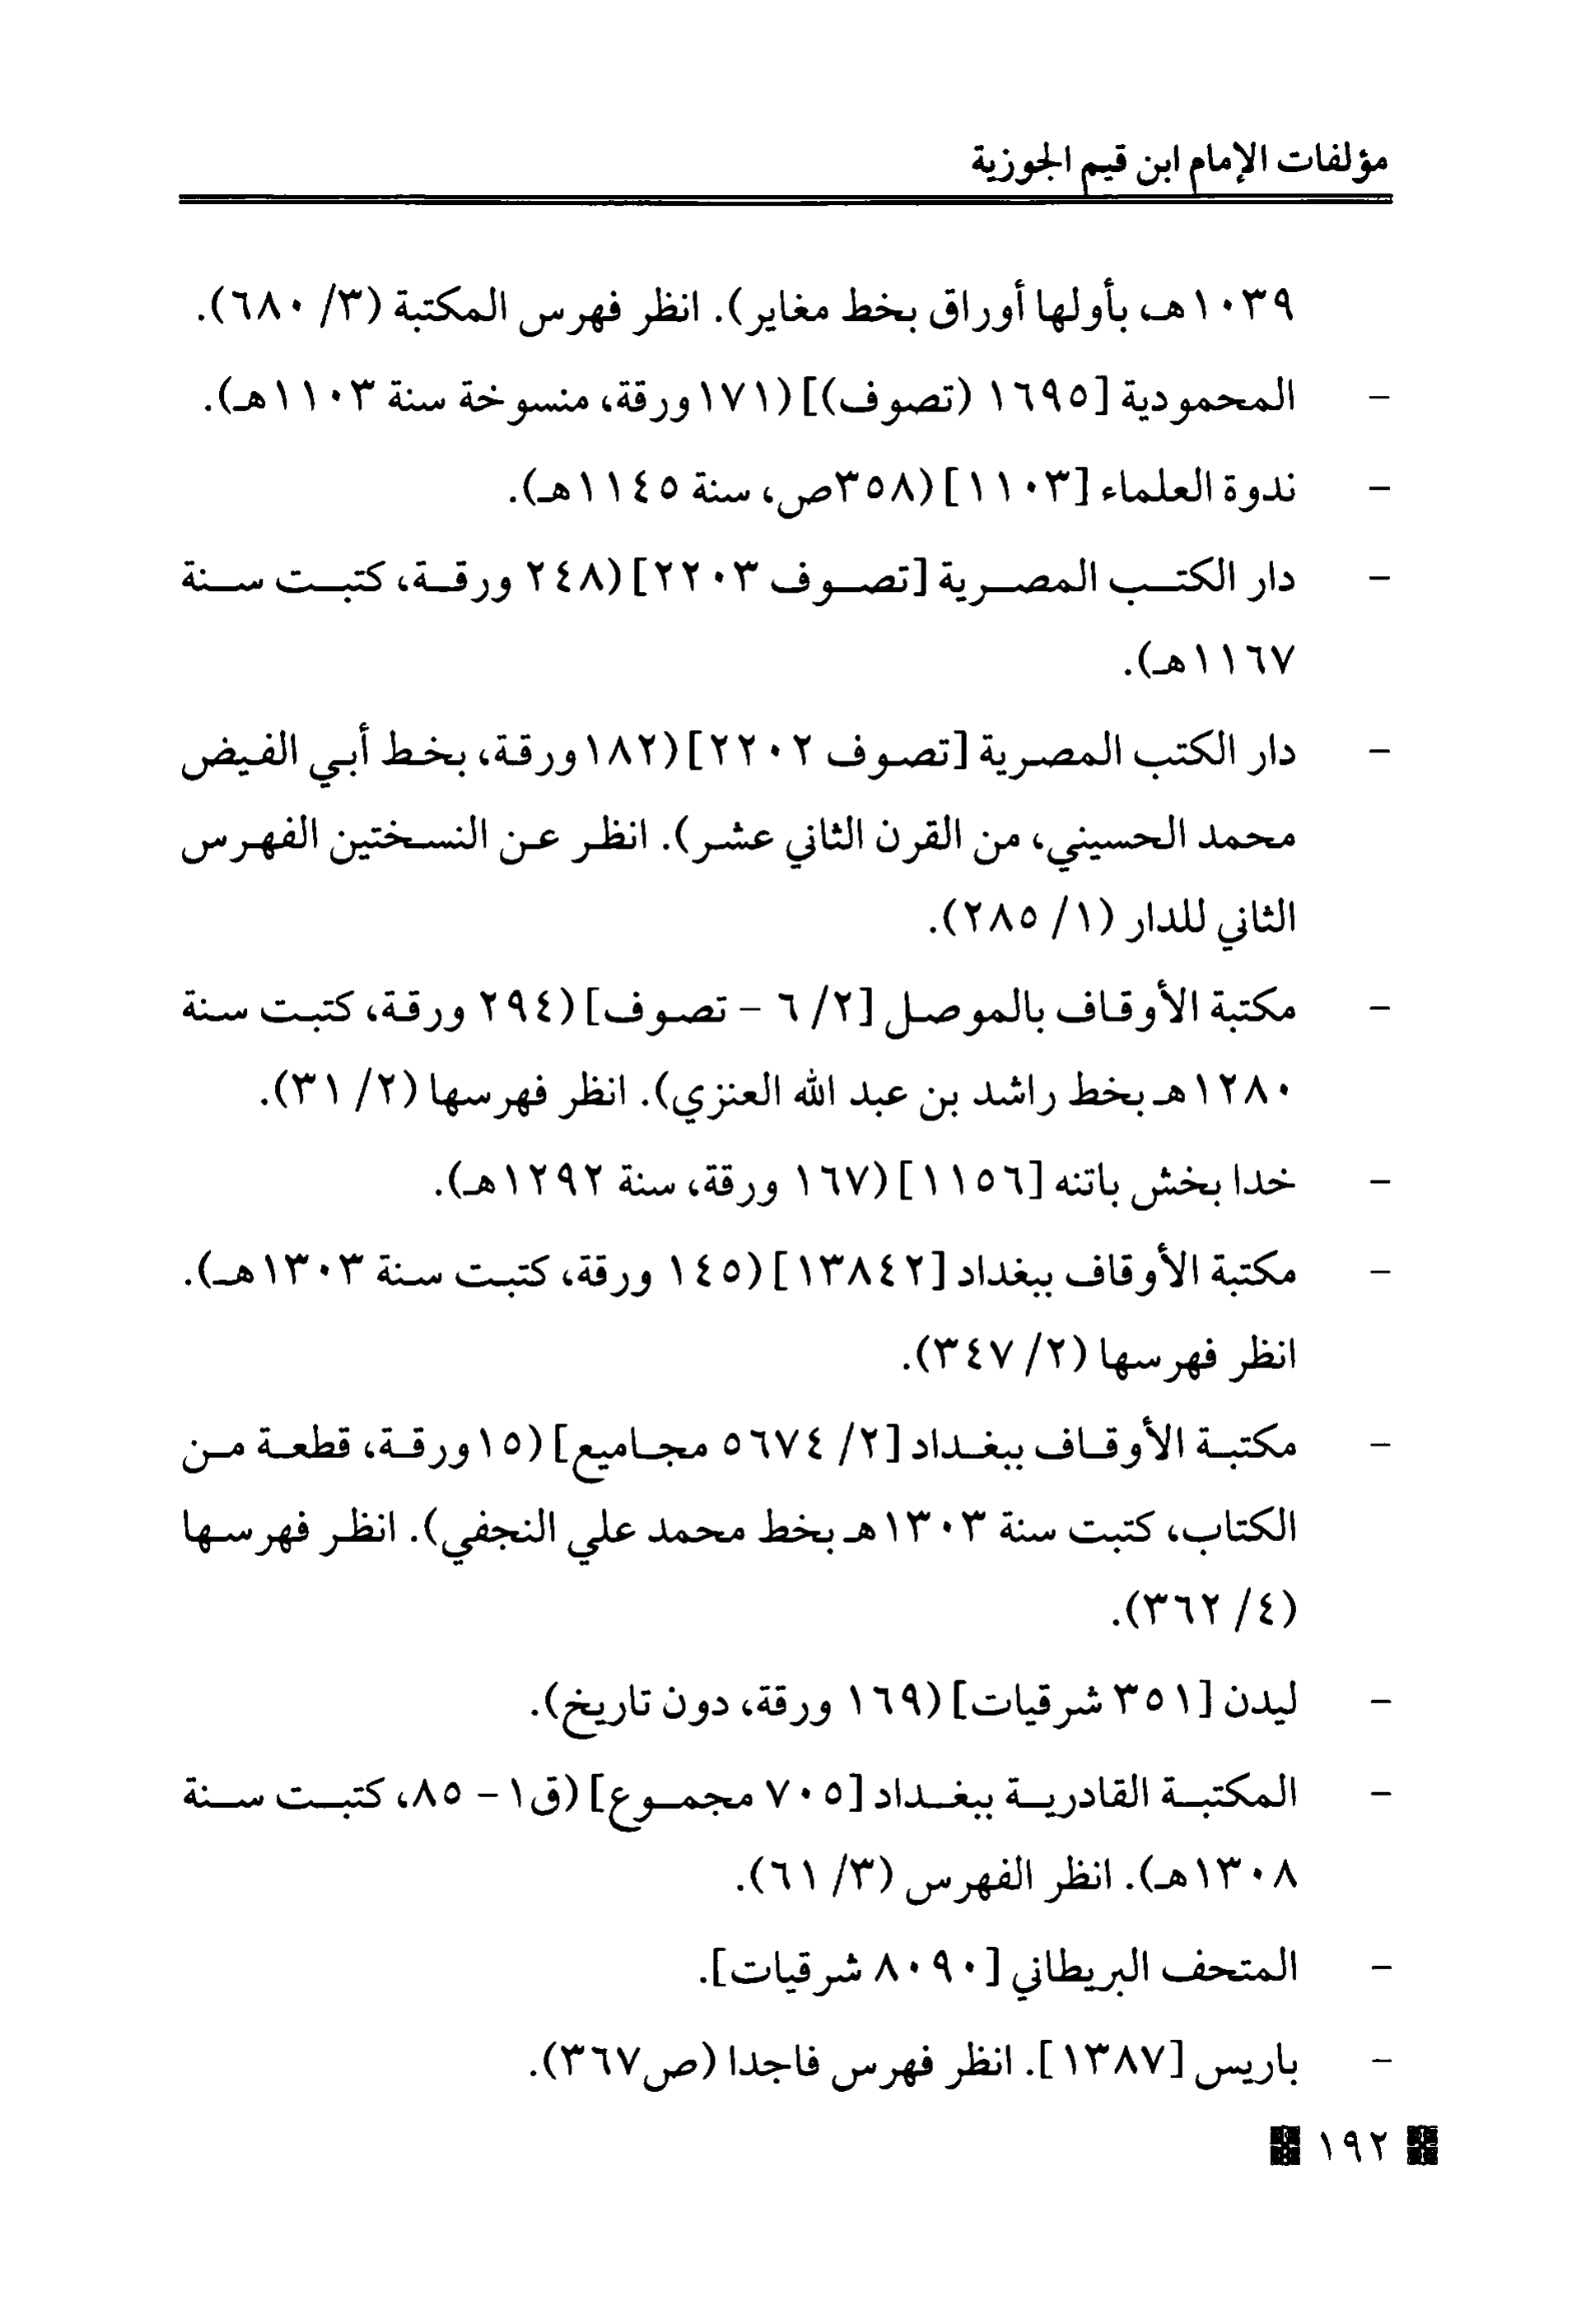 مؤلفات الإمام ابن قيم الجوزية
١٠٣٩هـ، بأولها أوراق بخط مغاير). انظر فهرس المكتبة (٣/ ٦٨٠).
- المحمودية [١٦٩٥ (تصوف)] (١٧١ورقة، منسوخة سنة ١١٠٣هـ).
- ندوة العلماء [١١٠٣] (٣٥٨ص، سنة ١١٤٥هـ).
- دار الكتب المصرية [تصوف ٢٢٠٣] (٢٤٨ ورقة، كتبت سنة
١١٦٧هـ).
- دار الكتب المصرية [تصوف ٢٢٠٢] (١٨٢ورقة، بخط أبي الفيض
محمد الحسيني، من القرن الثاني عشر). انظر عن النسختين الفهرس
الثاني للدار (١/ ٢٨٥).
- مكتبة الأوقاف بالموصل [٢/ ٦ - تصوف] (٢٩٤ ورقة، كتبت سنة
١٢٨٠هـ بخط راشد بن عبد الله العنزي). انظر فهرسها (٢/ ٣١).
- خدا بخش باتنه [١١٥٦] (١٦٧ ورقة، سنة ١٢٩٢هـ).
- مكتبة الأوقاف ببغداد [١٣٨٤٢] (١٤٥ ورقة، كتبت سنة ١٣٠٣هـ).
انظر فهرسها (٢/ ٣٤٧).
- مكتبة الأوقاف ببغداد [٢/ ٥٦٧٤ مجاميع] (١٥ورقة، قطعة من
الكتاب، كتبت سنة ١٣٠٣هـ بخط محمد علي النجفي). انظر فهرسها
(٤/ ٣٦٢).
- ليدن [٣٥١ شرقيات] (١٦٩ ورقة، دون تاريخ).
- المكتبة القادرية ببغداد [٧٠٥ مجموع] (ق١ - ٨٥، كتبت سنة
١٣٠٨هـ). انظر الفهرس (٣/ ٦١).
- المتحف البريطاني [٨٠٩٠ شرقيات].
- باريس [١٣٨٧]. انظر فهرس فاجدا (ص٣٦٧).
١٩٢